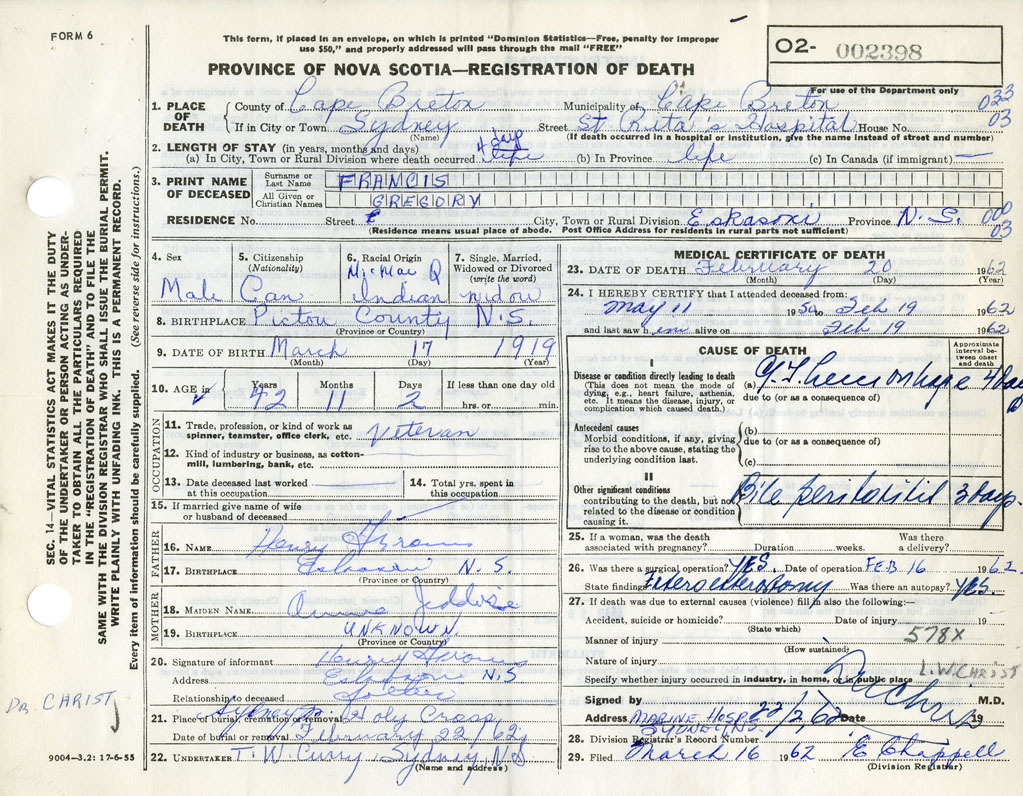 FORM 6
This form, if placed in an envelope, on which is printed "Dominion Statistics—Free, penalty for improper
use $50," and properly addressed will pass through the mail "FREE"
O2- 002398
For use of the Department only
PROVINCE OF NOVA SCOTIA—REGISTRATION OF DEATH
1. PLACE OF DEATH County of Cape Breton Municipality of Cape Breton 033
If in City or Town Sydney Street St Rita's Hospital House No. 03
(Name) (If death occurred in a hospital or institution, give the name instead of street and number)
2. LENGTH OF STAY (in years, months and days) 4 days
(a) In City, Town or Rural Division where death occurred life (b) In Province life (c) In Canada (if immigrant) —
3. PRINT NAME OF DECEASED Surname or Last Name FRANCIS
All Given or Christian Names GREGORY
RESIDENCE No. Street City, Town or Rural Division Eskasoni Province N.S. 000
03
(Residence means usual place of abode. Post Office Address for residents in rural parts not sufficient)
4. Sex Male
5. Citizenship (Nationality) Can
6. Racial Origin MicMac Indian
7. Single, Married, Widowed or Divorced (write the word) Widow
8. BIRTHPLACE Pictou County N.S.
(Province or Country)
9. DATE OF BIRTH March 17 1919
(Month) (Day) (Year)
10. AGE in Years 42 Months 11 Days 2 If less than one day old
hrs. or min.
OCCUPATION
11. Trade, profession, or kind of work as
spinner, teamster, office clerk, etc. Veteran
12. Kind of industry or business, as cotton-
mill, lumbering, bank, etc.
13. Date deceased last worked at this occupation
14. Total yrs. spent in this occupation
15. If married give name of wife
or husband of deceased
FATHER
16. NAME Henry
17. BIRTHPLACE Eskasoni N.S.
(Province or Country)
MOTHER
18. MAIDEN NAME
19. BIRTHPLACE UNKNOWN
(Province or Country)
20. Signature of informant Henry
Address Eskasoni N.S
Relationship to deceased Father
21. Place of burial, cremation or removal Sydney Holy Cross
Date of burial or removal February 22/62
22. UNDERTAKER T. W. Curry Sydney NS
(Name and address)
MEDICAL CERTIFICATE OF DEATH
23. DATE OF DEATH February 20 1962
(Month) (Day) (Year)
24. I HEREBY CERTIFY that I attended deceased from:
May 11 1959 to Feb 19 1962
and last saw h em alive on Feb 19 1962
CAUSE OF DEATH
Approximate interval between onset and death
I
Disease or condition directly leading to death
(This does not mean the mode of
dying, e.g., heart failure, asthenia,
etc. It means the disease, injury, or
complication which caused death.)
(a) G.I. hemorrhage 4 days
due to (or as a consequence of)
Antecedent causes
Morbid conditions, if any, giving
rise to the above cause, stating the
underlying condition last.
(b)
due to (or as a consequence of)
(c)
II
Other significant conditions
contributing to the death, but not
related to the disease or condition
causing it.
Bile peritonitis 3 days
25. If a woman, was the death
associated with pregnancy? Duration weeks. Was there a delivery?
26. Was there a surgical operation? YES. Date of operation FEB 16 1962.
State findings Enteroenterostomy Was there an autopsy? YES.
27. If death was due to external causes (violence) fill in also the following:—
Accident, suicide or homicide? Date of injury 19
(State which)
578X
Manner of injury
(How sustained)
Nature of injury
L.W. CHRIST
Specify whether injury occurred in industry, in home, or in public place
Signed by M.D.
Address MARINE HOSP 22/2/62 Date 19
SYDNEY, NS.
28. Division Registrar's Record Number
29. Filed March 16 1962 E Chappell
(Division Registrar)
SEC. 14—VITAL STATISTICS ACT MAKES IT THE DUTY
OF THE UNDERTAKER OR PERSON ACTING AS UNDER-
TAKER TO OBTAIN ALL THE PARTICULARS REQUIRED
IN THE "REGISTRATION OF DEATH" AND TO FILE THE
SAME WITH THE DIVISION REGISTRAR WHO SHALL ISSUE THE BURIAL PERMIT.
WRITE PLAINLY WITH UNFADING INK. THIS IS A PERMANENT RECORD.
Every item of information should be carefully supplied. (See reverse side for instructions.)
DR CHRIST
9004—3.2: 17-6-55